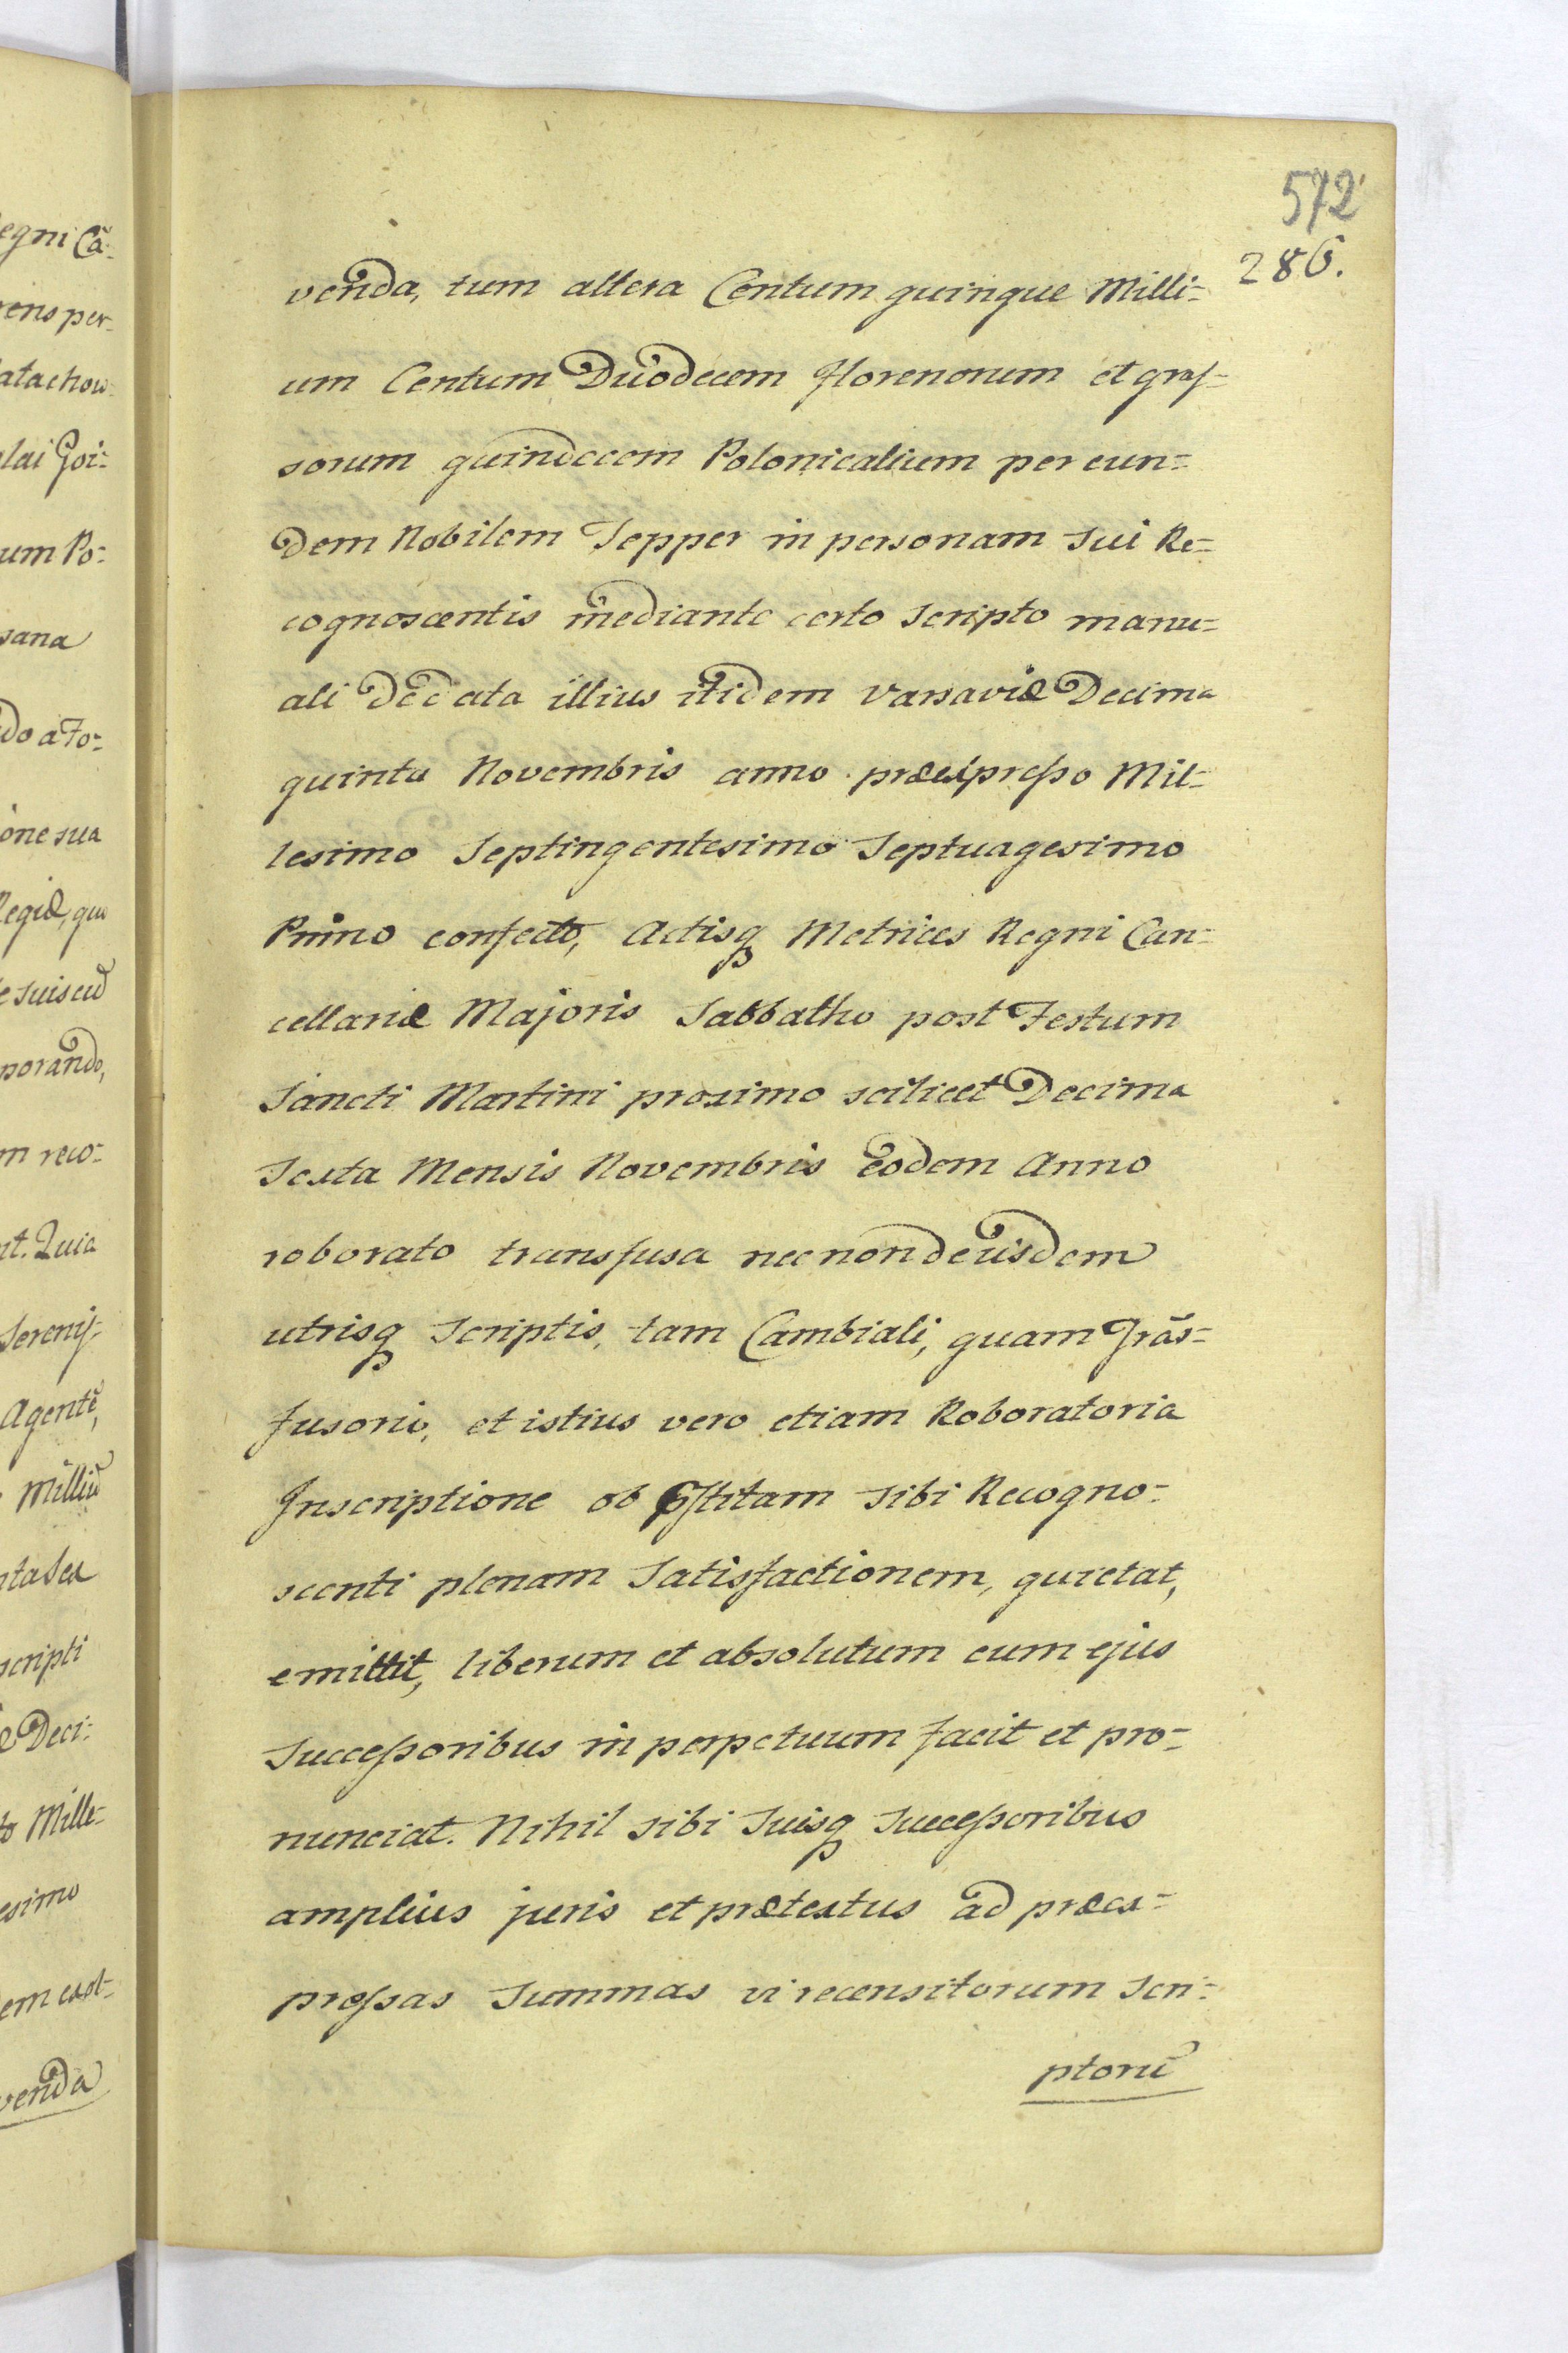 572
286.
venda, tum altera Centum quinque Milli=
um Centum Duodecem Florenorum et gros=
sorum quindecem Polonicalium per eun=
dem Nobilem Tepper in personam sui Re=
cognoscentis mediante certo Scripto manu=
ali de data illius itidem Varsaviæ Decima
quinta Novembris anno præexpresso Mil=
lesimo Septingentesimo Septuagesimo
Primo confecto, Actisq Metrices Regni Can=
cellariæ Majoris Sabbatho post Festum
Sancti Martini proximo scilicet Decima
Sexta Mensis Novembris eodem Anno
roborato transfusa necnon de iisdem
utrisq Scriptis, tam Cambiali, quam Trãs=
fusorio, et istius vero etiam Roboratoria
Inscriptione ob sibi Recogno=
scenti plenam Satisfactionem, quietat,
emittit, liberum et absolutum cum ejus
Successoribus in perpetuum facit et pro=
nunciat. Nihil sibi Suisq Successoribus
amplius juris et prætextus ad præex=
pressas Summas vi recensitorum Scri=
ptorũ
egni Cã=
rens per=
atachow=
lai Goi=
um Po=
sana
do a To=
one sua
Regiæ, qua
e suis cũ
porando,
m reco=
nt. Quia
Sereniss=
Agentẽ,
Milliũ
nta Sex
scripti
æ Deci=
to Mille=
esimo
em exol=
venda